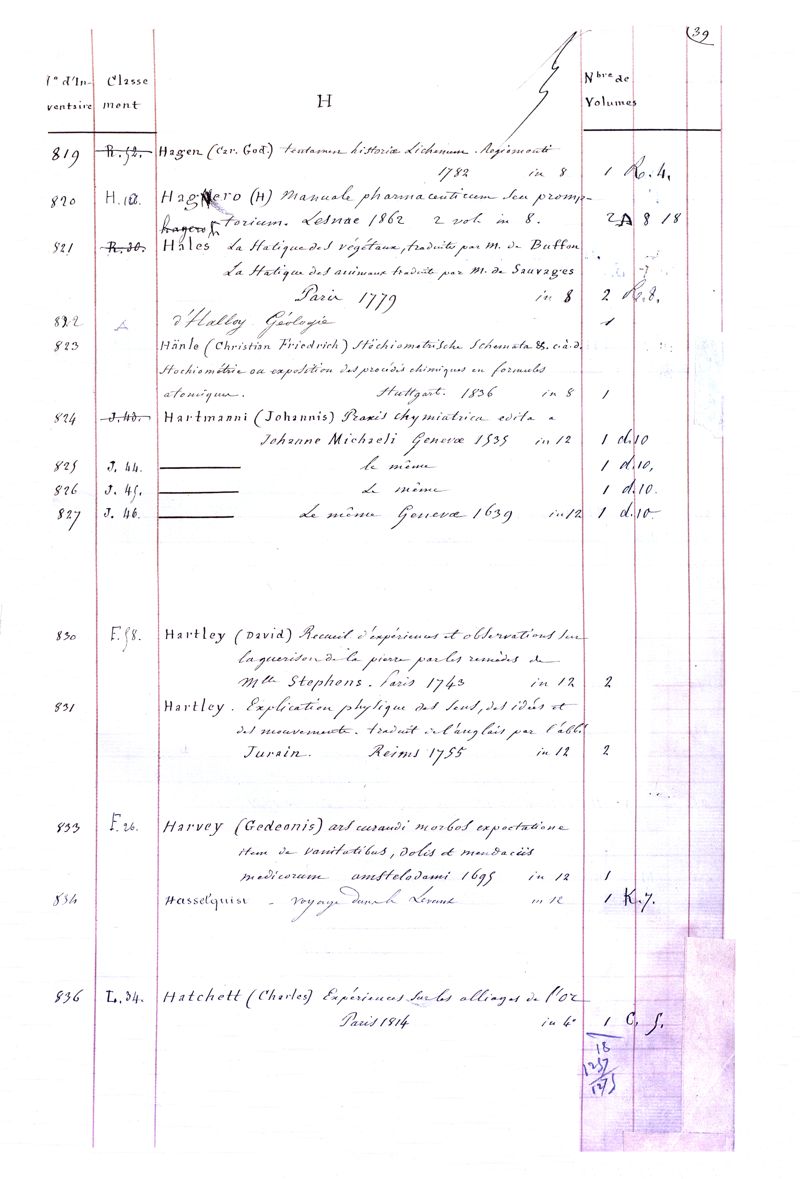 39
N° d'In- Classe Nbre de
ventaire ment H Volumes
819 R. 52. Hagen (Car. God.) tentamen historiæ Lichenum Regiomonti
1782 in 8 1 R. 4.
820 H. Hagnero (H) Manuale pharmaceuticum seu promp-
hagero torium. Lesnae 1862 2 vol. in 8. 2 A 8 18
821 R. 30. Hales La Statique des végétaux, traduite par M. de Buffon
La Statique des animaux traduit par M. de Sauvages
Paris 1779 in 8 2 R. 8.
822 A d'Halloy Géologie 1
823 Hänle (Christian Friedrich) Stöchiometrische Schemata &. c.à.d.
Stochiométrie ou exposition des procédés chimiques en formules
atomiques. Stuttgart. 1836 in 8 1
824 J. 43. Hartmanni (Johannis) Praxis chymiatrica edita a
Johanne Michaeli Genevæ 1535 in 12 1 d. 10
825 J. 44. le même 1 d. 10.
826 J. 45. Le même 1 d. 10.
827 J. 46. Le même Genevæ 1639 in 12 1 d. 10.
830 F. 58. Hartley (David) Recueil d'expériences et observations sur
la guerison de la pierre par les remèdes de
Mlle Stephens. Paris 1743 in 12 2
831 Hartley. Explication physique des sens, des idées et
des mouvements. traduit de l'anglais par l'abbé
Jurain. Reims 1755 in 12 2
833 F. 26. Harvey (Gedeonis) ars curandi morbos expectatione
item de vanitatibus, dolis et mendaciis
medicorum amstelodami 1695 in 12 1
834 Hasselquist - Voyage dans le Levant in 12 1 K. 7.
836 L. 34. Hatchett (Charles) Expériences sur les alliages de l'or
Paris 1814 in 4° 1 C. 5.
18
1257
1275